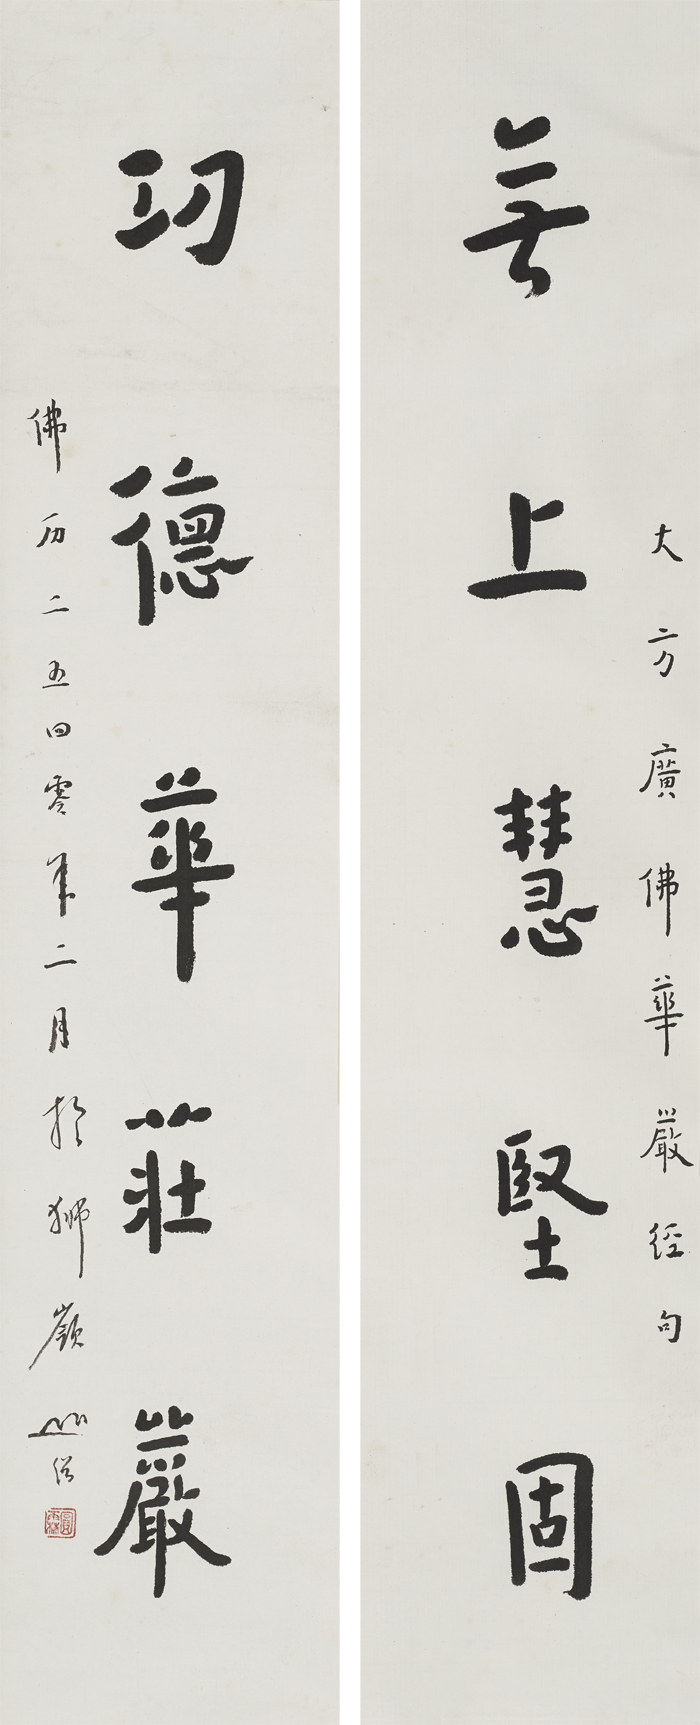 大方廣佛華嚴經句
無上慧堅固
功德華莊嚴
佛历二五四零年二月於獅嶺山僧
圓霖